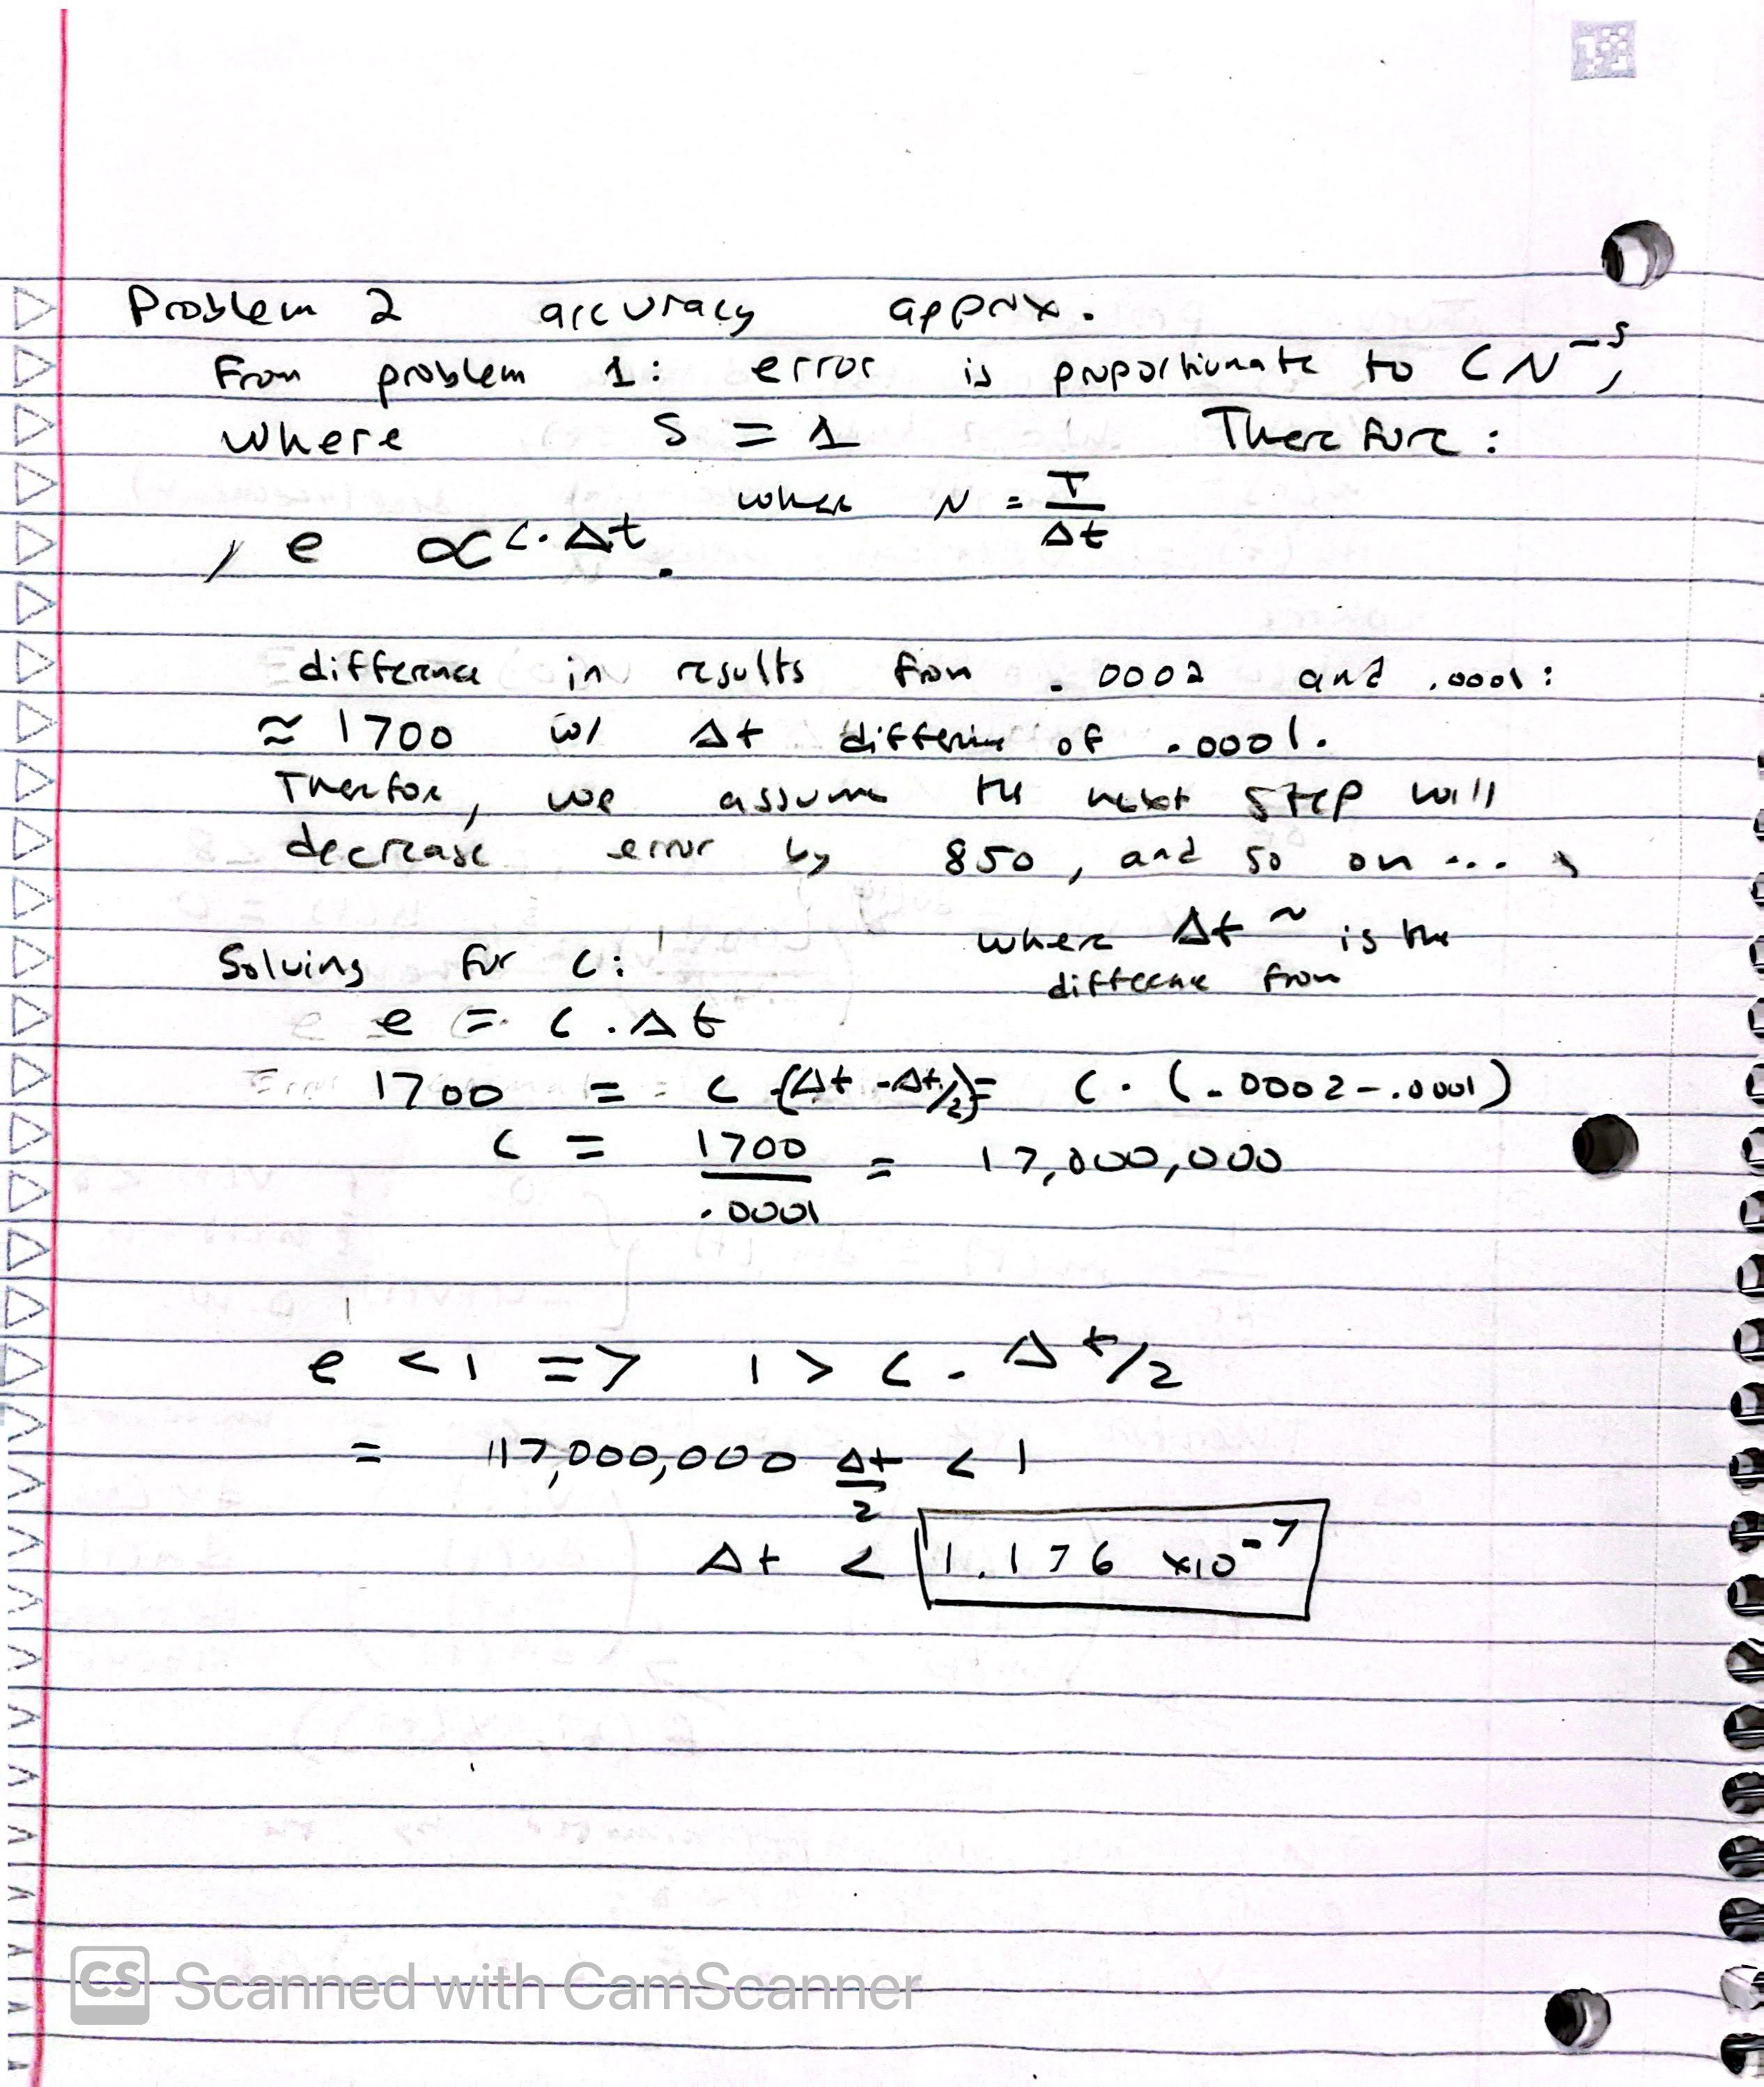 Problem 2 accuracy apprx.
From problem 1: error is proportionate to CN^-s,
where s = 1 Therefore:
where N = T/Δt
, e ∝ c·Δt.
difference in results from .0002 and .0001:
≈ 1700 w/ Δt difference of .0001.
Therefore, we assume the next step will
decrease error by 850, and so on ...
where Δt ~ is the
Solving for c: difference from
e = c·Δt
1700 = c (Δt - Δt/2) = c·(.0002-.0001)
c = 1700/.0001 = 17,000,000
e < 1 => 1 > c·Δt/2
= 17,000,000 Δt/2 < 1
Δt < 1.176 x10^-7
CS Scanned with CamScanner